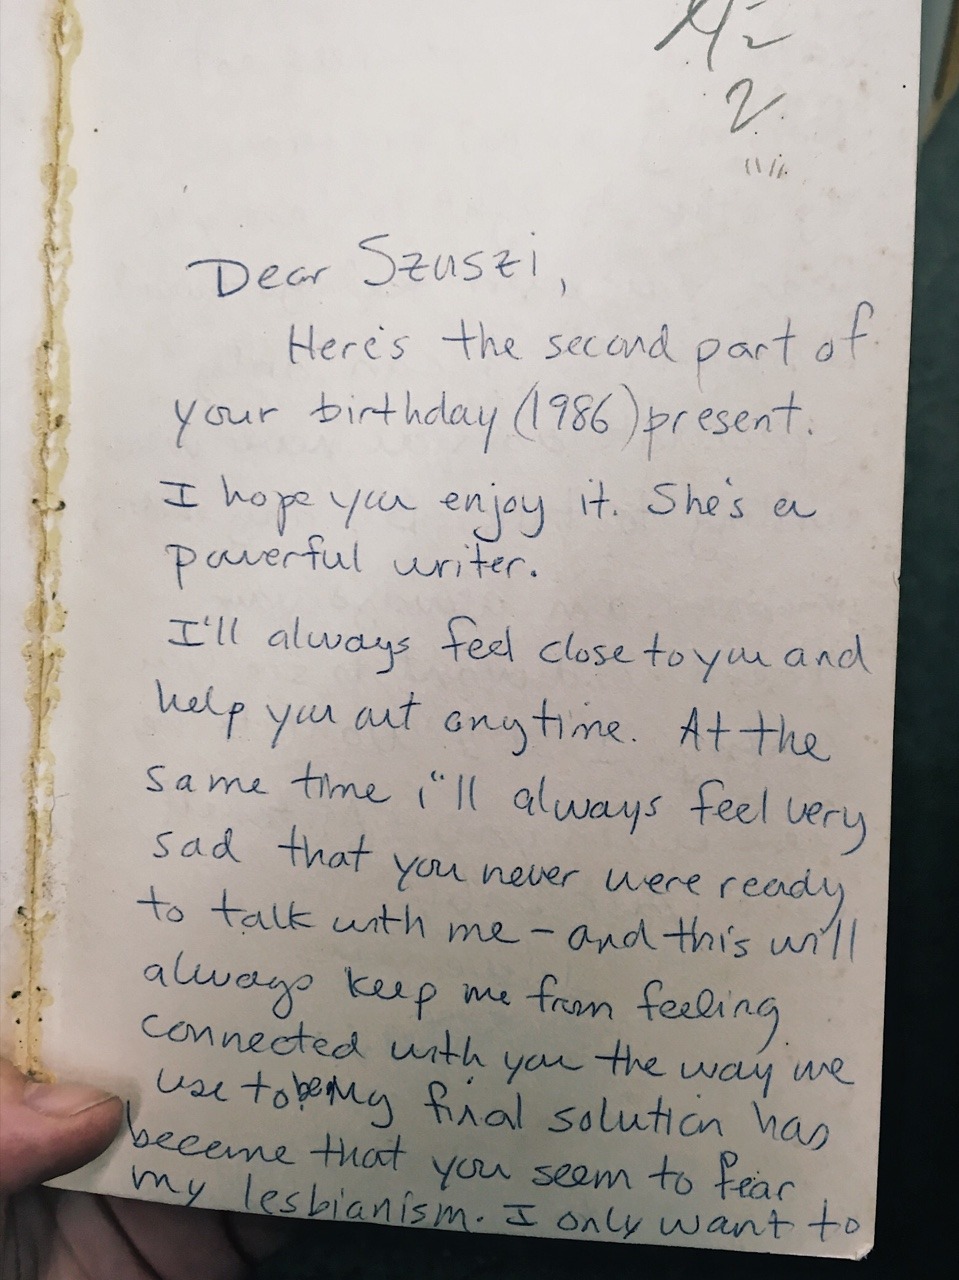 2
Dear Szuszi,
Here's the second part of
your birthday (1986) present.
I hope you enjoy it. She's a
powerful writer.
I'll always feel close to you and
help you out anytime. At the
same time i'll always feel very
sad that you never were ready
to talk with me – and this will
always keep me from feeling
connected with you the way we
use to be. My final solution has
become that you seem to fear
my lesbianism. I only want to